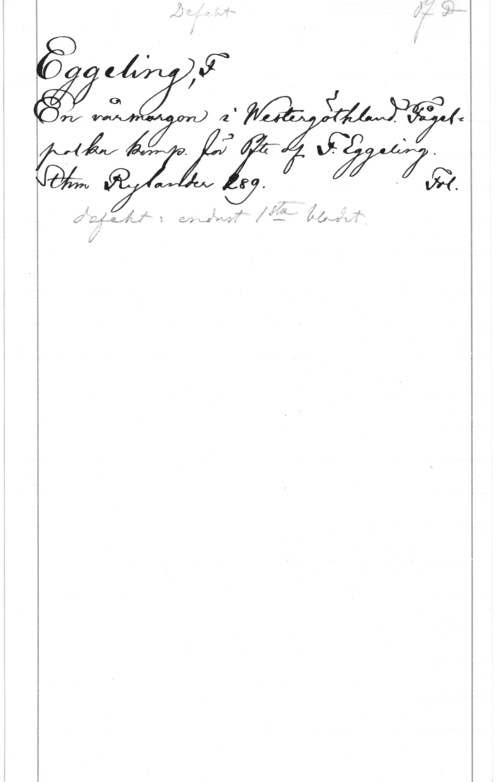 Defekt
Eggeling, F
En vårmorgon i Westergöthland. Fågel-
polka komp. för Pfte af F. Eggeling.
Sthm Rylander Lsg. Fol.
defekt: endast 1sta bladet.